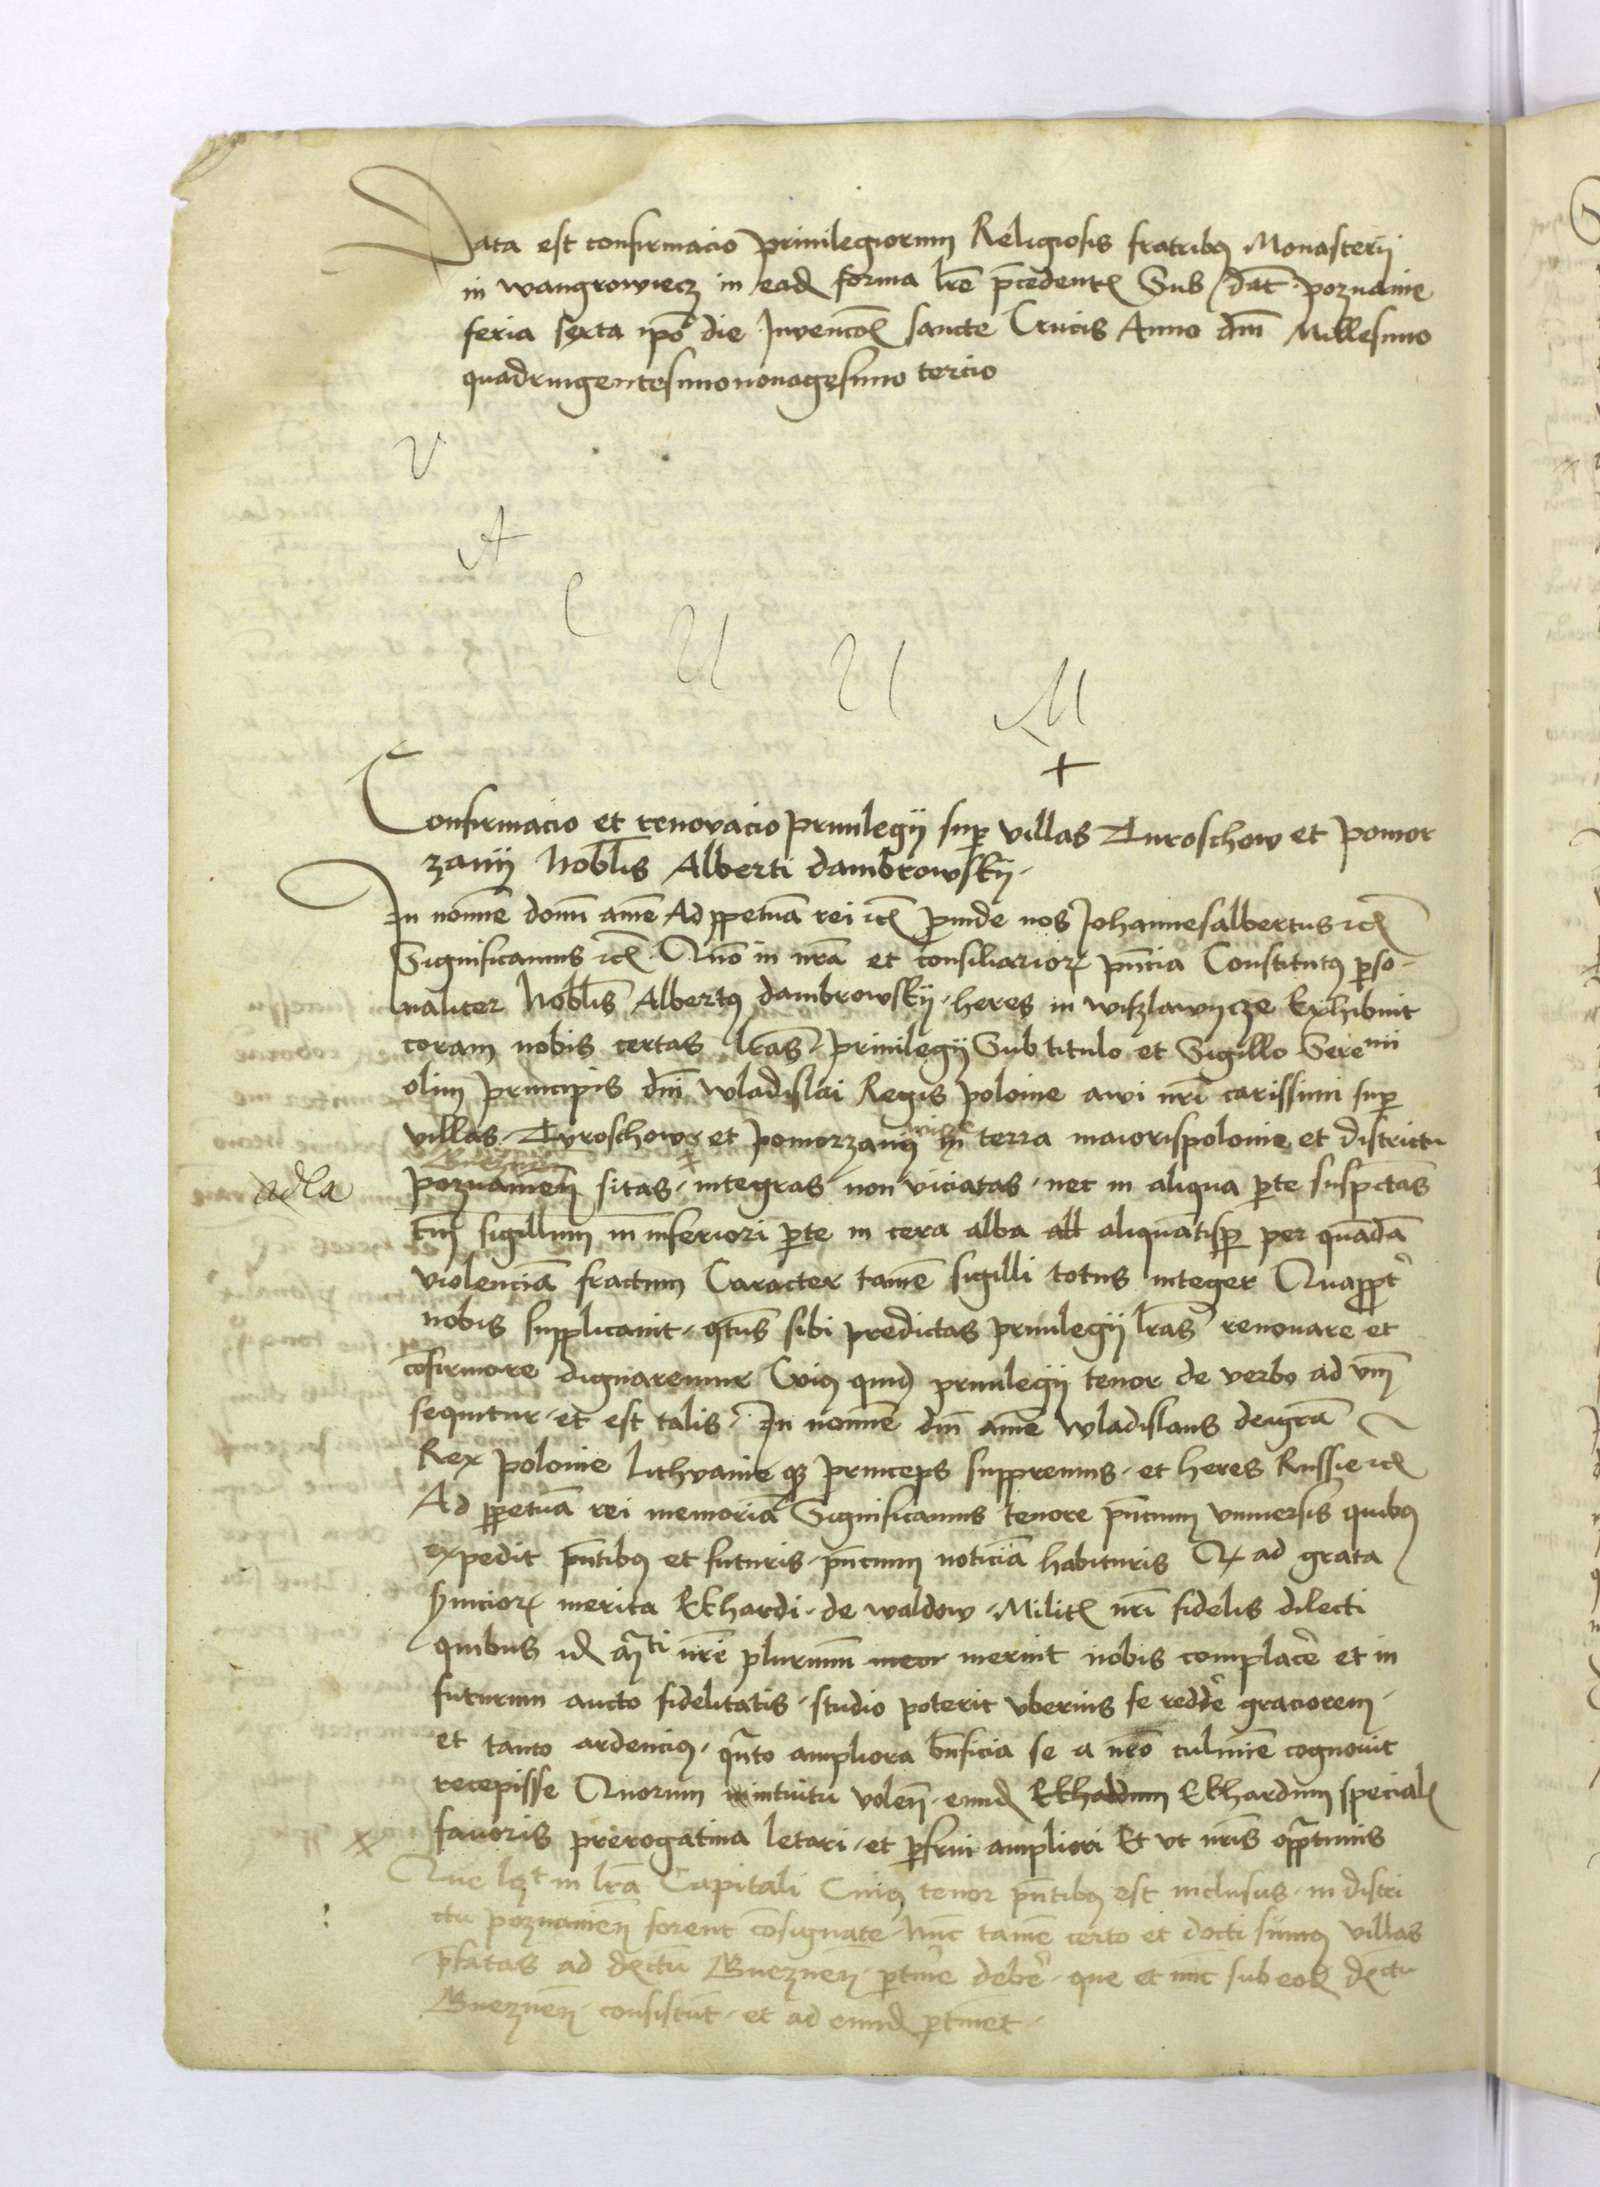 Data est confirmacio privilegiorum Religiosis fratribq Monasterij
in wangrowiecz in ead forma lre precedent Sub dat poznanie
feria sexta ipo die Invencois sancte Crucis Anno dni Millesimo
quadringentesimo nonagesimo tercio
V
A
C
U
U
M
Confirmacio et renovacio privilegij sup villas Turoschow et pomor
zanij Noblis Alberti dambrowskij
In nomine domi ame Ad ppetua rei etc proinde nos Johannesalbertus etc
Significamus etc Quo in nra et consiliarior pncia Constitutq perso
naliter Noblis Albertq dambrowskij heres in Exhibuit
coram nobis certas lras privilegij Sub titulo et Sigillo Serenii
olim principis dni wladislai Regis polonie avi nri carissimi sup
villas Tyroschow et pomorzanij in terra maiorispolonie et districtu
Gneznen
adla poznamen sitas integras non viciatas nec in aliqua pte suspectas
sigillum in inferiori pte in cera alba all aliquatisp per quada
violencia fractum Caracter tame sigilli totus integer Quappt
nobis supplicavit qtus sibi predictas privilegij lras renovare et
cofirmare dignaremur Cuiq quid privilegij tenor de verbo ad vm
sequitur et est talis In nomine dni ame wladislaus deigra
Rex polonie lithvanie qz princeps suppremus et heres Russie etc
Ad ppetua rei memoria Significamus tenore pncium vniversis quibq
expedit pntibq et futuris pncium noticia habituris Q ad grata
merita Ekhardi de waldow Milit nri fidelis dilecti
quibus id mti nre plurimum meruit nobis complacere et in
futurum aucto fidelitatis studio poterit vberius se reddere graciorem
et tanto ardenciq quto ampliora bnficia se a nro culmine cognovit
recepisse Quorum intuitu volen eund Ekhaddum Ekhardum special
favoris prerogativa letari et pfrui ampliori Et vt nris opptunis
Que lt in lra Capitali Cuiq tenor pntibq est inclusus in distri
ctu poznanien forent cosignate nuc tame certo et docti sumq villas
pfatas ad dctu Gneznen ptinere debere que et nuc sub eod dctu
Gneznen consistunt et ad eund ptinet